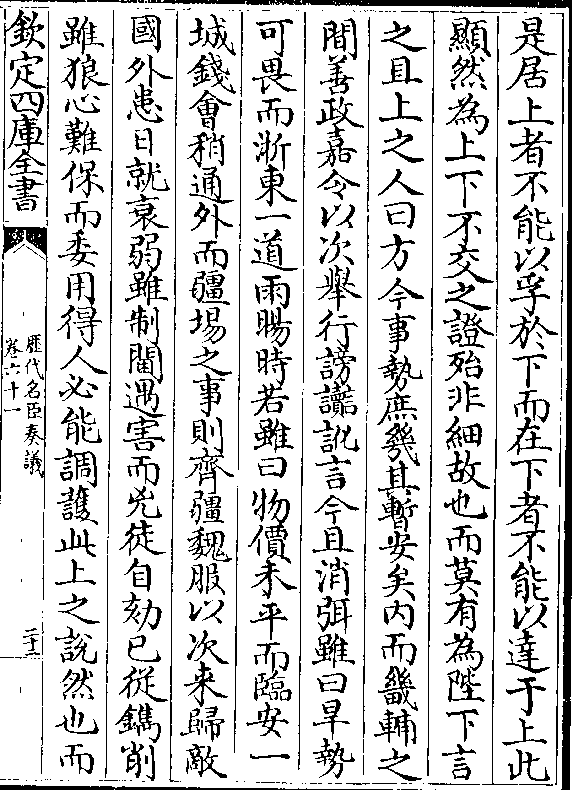 是居上者不能以孚於下而在下者不能以達于上此
顯然為上下不交之證殆非細故也而莫有為陛下言
之且上之人曰方今事勢庶幾其暫安矣内而畿輔之
間善政嘉令以次舉行謗讟訛言今且消弭雖曰旱勢
可畏而浙東一道雨暘時若雖曰物價未平而臨安一
城錢㑹稍通外而疆場之事則齊疆魏服以次来歸敵
國外患日就衰弱雖制閫遇害而兇徒自劾已從鐫削
雖狼心難保而委用得人必能調護此上之說然也而
欽定四庫全書
歴代名臣奏議
卷六十一
二十二